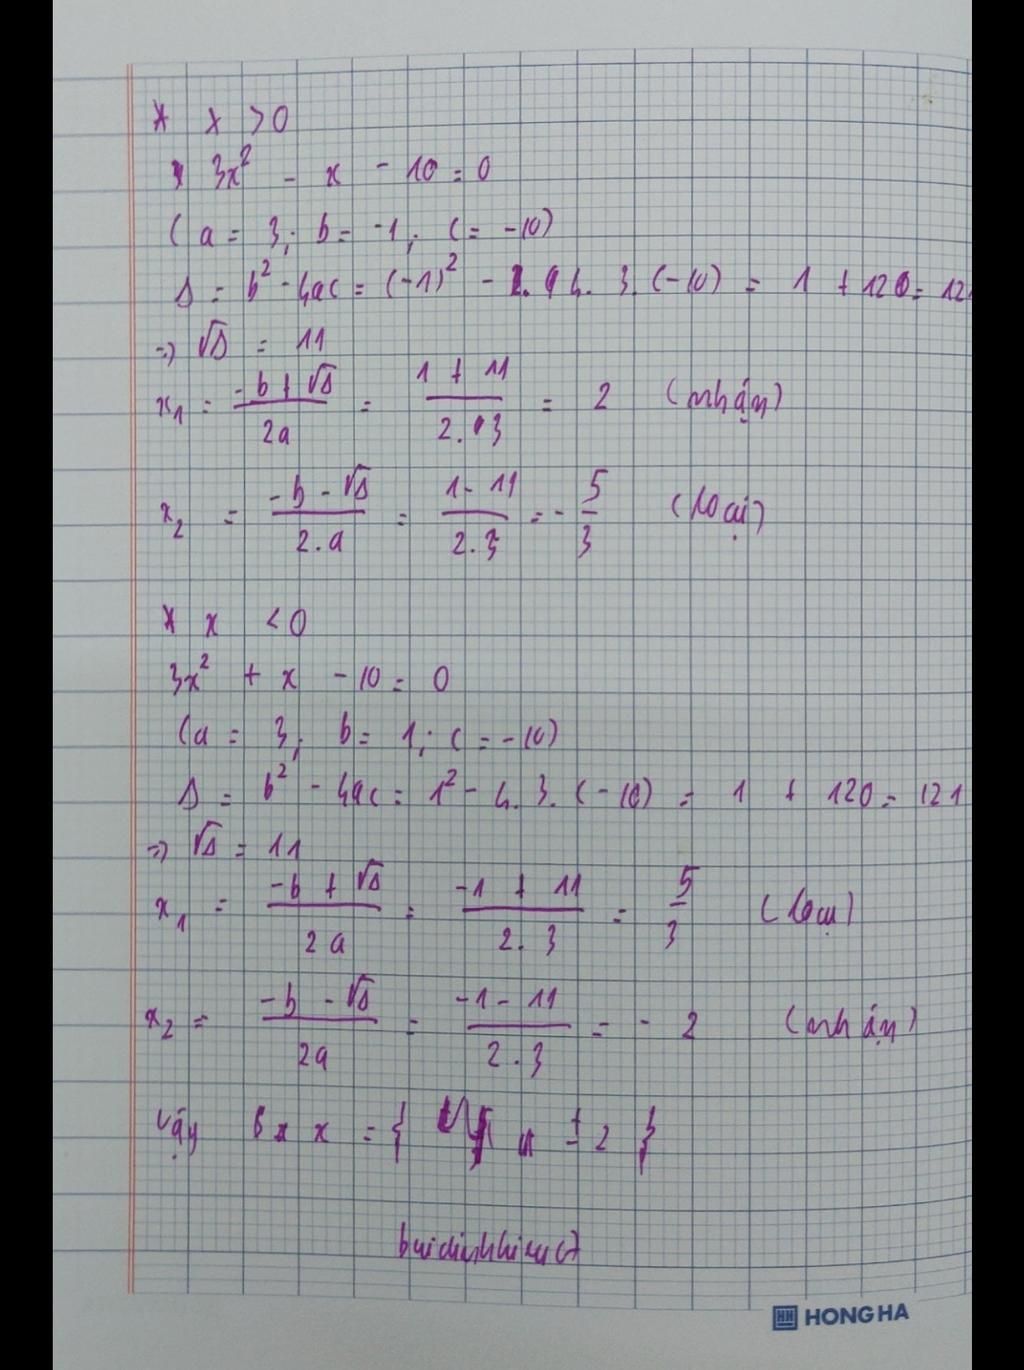 * x > 0
3x² - x - 10 = 0
( a = 3; b = -1; c = -10)
Δ = b² - 4ac = (-1)² - 4. 3. (-10) = 1 + 120 = 12
=> √Δ = 11
x₁ = (-b + √Δ)/(2a) = (1 + 11)/(2.3) = 2 (nhận)
x₂ = (-b - √Δ)/(2.a) = (1 - 11)/(2.3) = - 5/3 (loại)
* x < 0
3x² + x - 10 = 0
(a = 3; b = 1; c = -10)
Δ = b² - 4ac = 1² - 4. 3. (-10) = 1 + 120 = 121
=> √Δ = 11
x₁ = (-b + √Δ)/(2a) = (-1 + 11)/(2.3) = 5/3 (loại)
x₂ = (-b - √Δ)/(2a) = (-1 - 11)/(2.3) = - 2 (nhận)
Vậy x = { ± 2 }
HONG HA